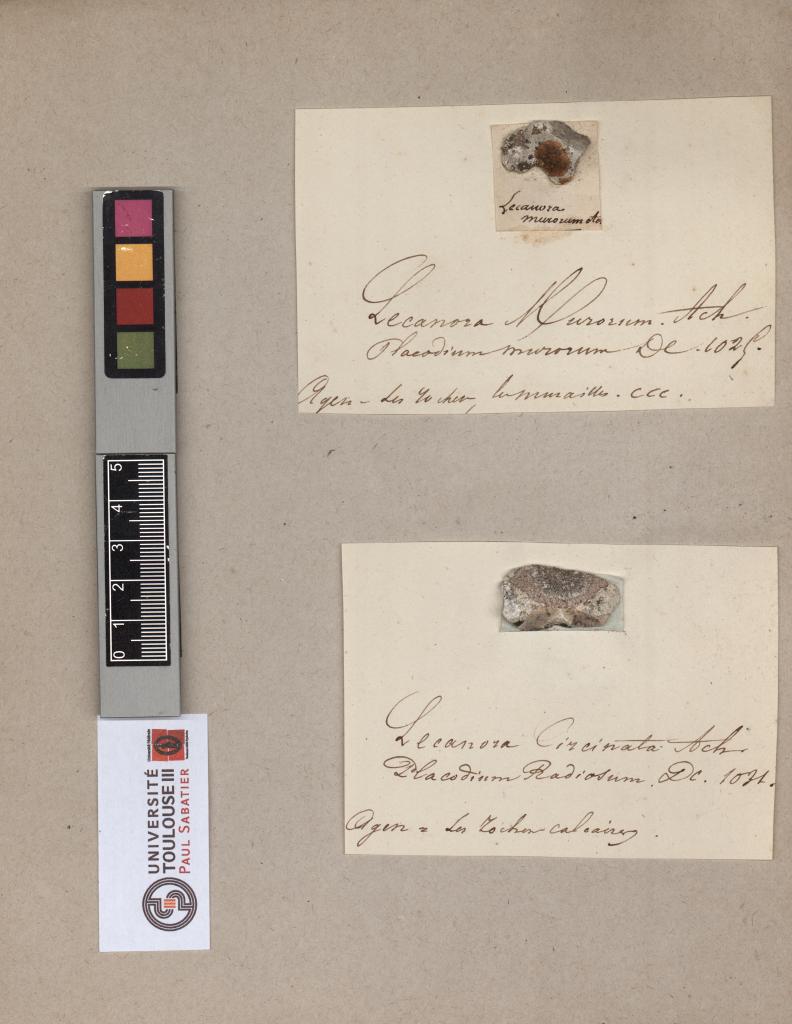 Lecanora
murorum
Lecanora Murorum. Ach.
Placodium murorum DC. 1025.
Agen - les rocher, les murailles. ccc.
5
4
3
2
1
0
Lecanora Circinata Ach.
Placodium Radiosum. DC. 1031.
Agen = les rocher calcaires.
UNIVERSITÉ
TOULOUSE III
PAUL SABATIER